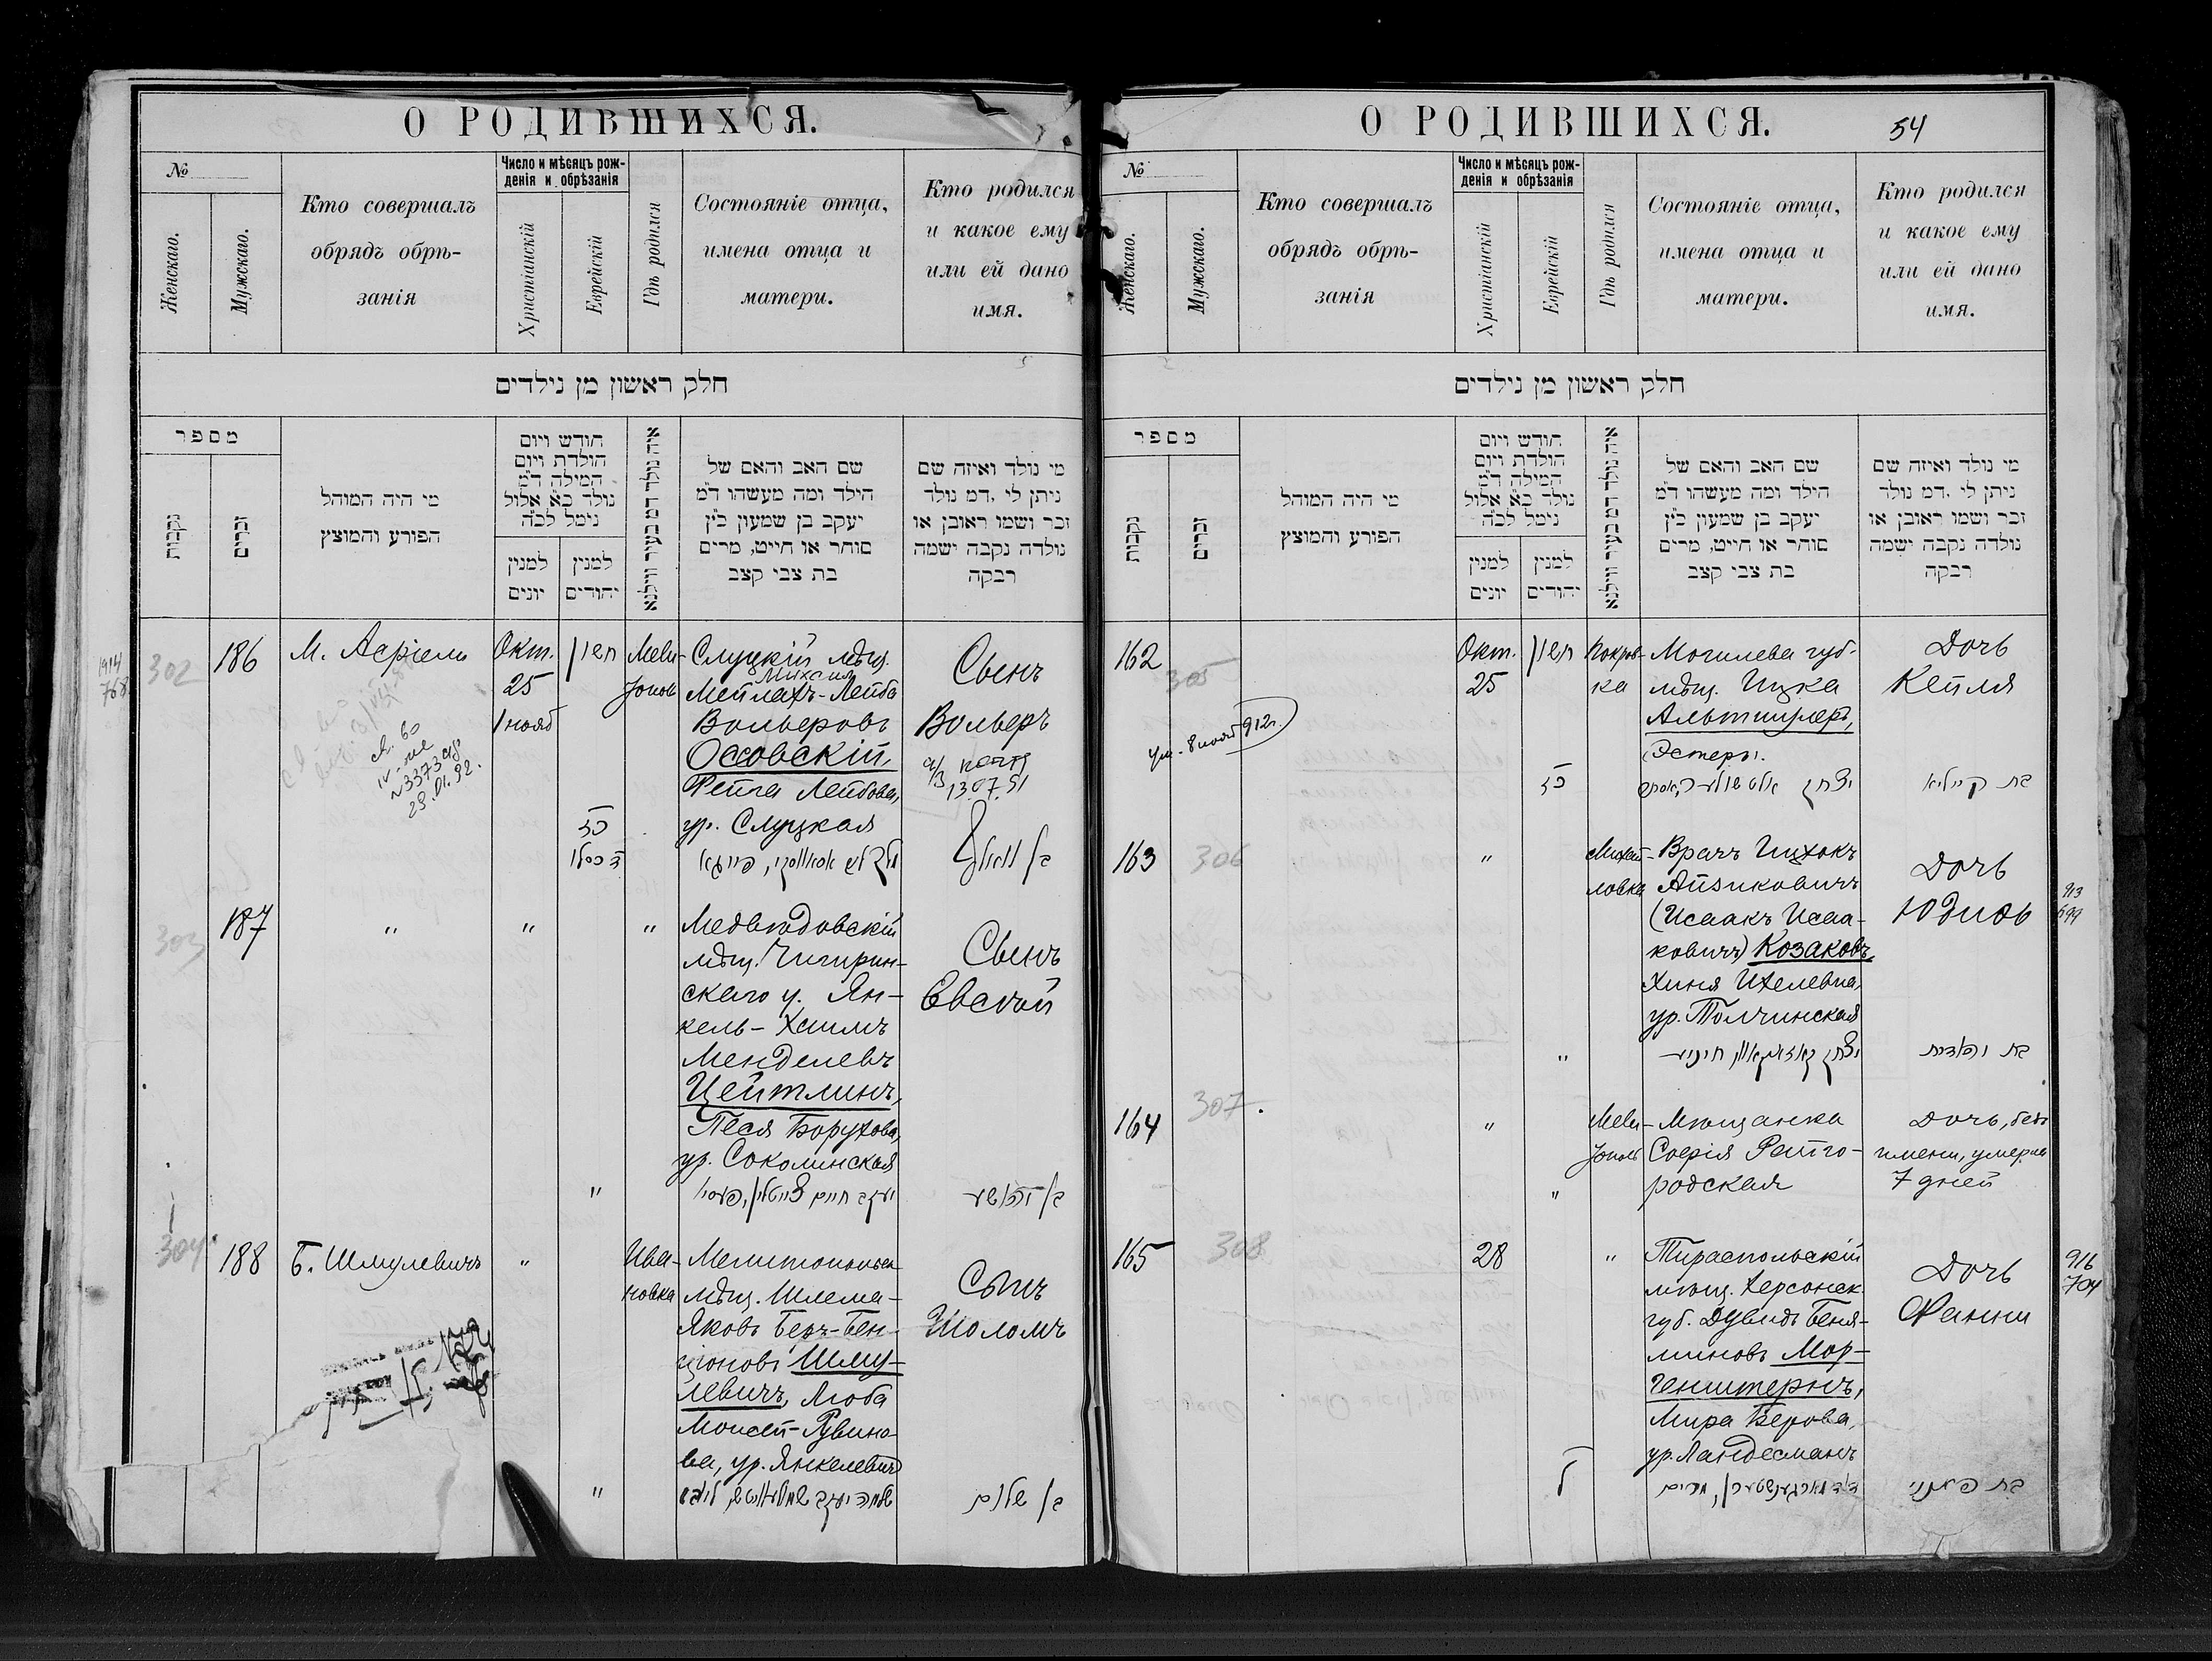 О РОДИВШИХСЯ.
№
Женскаго.
Мужскаго.
Кто совершалъ
обрядъ обрѣ-
занія
Число и мѣсяцъ рож-
денія и обрѣзанія
Христіанскій
Еврейскій
Гдѣ родился
Состояніе отца,
имена отца и
матери.
Кто родился
и какое ему
или ей дано
имя.
חלק ראשון מן נילדים
מספר
נקבות
זכרים
מי היה המוהל
הפורע והמוצץ
חודש ויום
הולדת ויום
המילה ד״מ
נולד כ״א אלול
נימל לכ״ה
למנין
יונים
למנין
יהודים
איה נולד דמ בעיר ווילנא
שם האב והאם של
הילד ומה מעשהו ד״מ
יעקב בן שמעון כ״ץ
סוחר או חייט, מרים
בת צבי קצב
מי נולד ואיזה שם
ניתן לי .דמ נולד
זכר ושמו ראובן או
נולדה נקבה ישמה
רבקה
1914
768
302
186
М. Асріель
Окт.
25
1 нояб
חשון
כז
ד כסלו
Мели-
тополь
Слуцкій мѣщ.
Михаил
Мейлахъ-Лейба
Вольфовъ
Оссовскій,
Рейга Лейбова,
ур. Слуцкая
Сынъ
Вольфъ
13.07.51
בן וואלף
ch. 60
23.01.92.
303
187
"
"
"
Медвѣдовскій
мѣщ. Чигирин-
скаго у. Ян-
кель-Хаимъ
Менделевъ
Цейтлинъ,
Песя Борухова,
ур. Соколинская
"
יעקב חיים צייטלין, פעסיל
Сынъ
Евсей
בן יהושע
304
188
Б. Шмулевичъ
"
Ива-
новка
Мелитопольск
мѣщ. Шлема-
Яковъ Беръ-Бен-
ціоновъ Шму-
левичъ, Люба
Моисей-Рувино-
ва, ур. Янкелевичъ
"
שלמה יעקב שמולעוויטש, ליבא
Сынъ
Шоломъ
בן שלום
О РОДИВШИХСЯ.
54
№
Женскаго.
Мужскаго.
Кто совершалъ
обрядъ обрѣ-
занія
Число и мѣсяцъ рож-
денія и обрѣзанія
Христіанскій
Еврейскій
Гдѣ родился
Состояніе отца,
имена отца и
матери.
Кто родился
и какое ему
или ей дано
имя.
חלק ראשון מן נילדים
מספר
נקבות
זכרים
מי היה המוהל
הפורע והמוצץ
חודש ויום
הולדת ויום
המילה ד״מ
נולד כ״א אלול
נימל לכ״ה
למנין
יונים
למנין
יהודים
איה נולד דמ בעיר ווילנא
שם האב והאם של
הילד ומה מעשהו ד״מ
יעקב בן שמעון כ״ץ
סוחר או חייט, מרים
בת צבי קצב
מי נולד ואיזה שם
ניתן לי .דמ נולד
זכר ושמו ראובן או
נולדה נקבה ישמה
רבקה
162
305
Ум. 8 нояб 912 г.
Окт.
25
חשון
כז
Покров-
ка
Могилева губ.
мѣщ. Ицка
Альтшулеръ,
Эстеръ.
יצחק אלטשולער, אסתר
Дочь
Кейля
בת קיילא
163
306
"
Михай-
ловка
Врачъ Ицхокъ
Айзиковичъ
(Исаакъ Исаа-
ковичъ) Козаковъ,
Хиня Ихелевна,
ур. Толчинская
"
יצחק קאזאקאוו, חיניע
Дочь
Юдифь
בת יהודית
913
699
164
307
"
Мели-
тополь
Мѣщанка
Софія Райго-
родская
"
Дочь, безъ
имени, умерла
7 дней
165
308
28
"
Тираспольскій
мѣщ. Херсонск.
губ. Дувидъ Беня-
миновъ Мор-
генштернъ,
Мира Берова,
ур. Ландесманъ
ל
דוד מארגענשטערן, מרים
Дочь
Фанни
בת פאנני
916
704